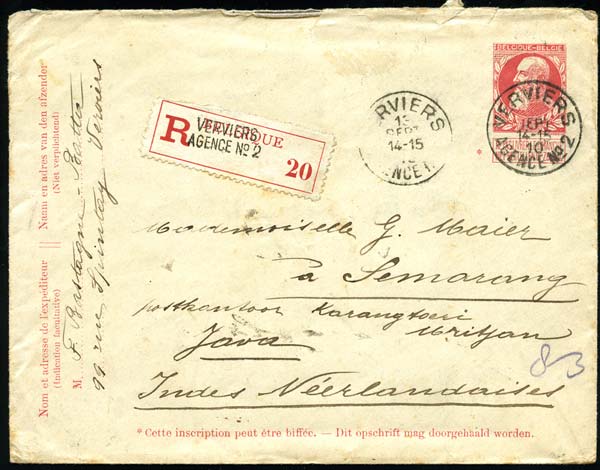 BELGIQUE-BELGIË
VERVIERS
13
SEPT
14-15
10
AGENCE No 2
VERVIERS
SEPT
14-15
10
AGENCE No 2
R BELGIQUE
VERVIERS
AGENCE No 2
20
Naam en adres van den afzender
(Niet verplichtend)
Nom et adresse de l'expéditeur
(Indication facultative)
M. F. Bastagne
99 rue Spintay Verviers
Mademoiselle G. Maier
à Semarang
postkantoor Karangtoeri
Java
Indes Néerlandaises
83
* Cette inscription peut être biffée. — Dit opschrift mag doorgehaald worden.